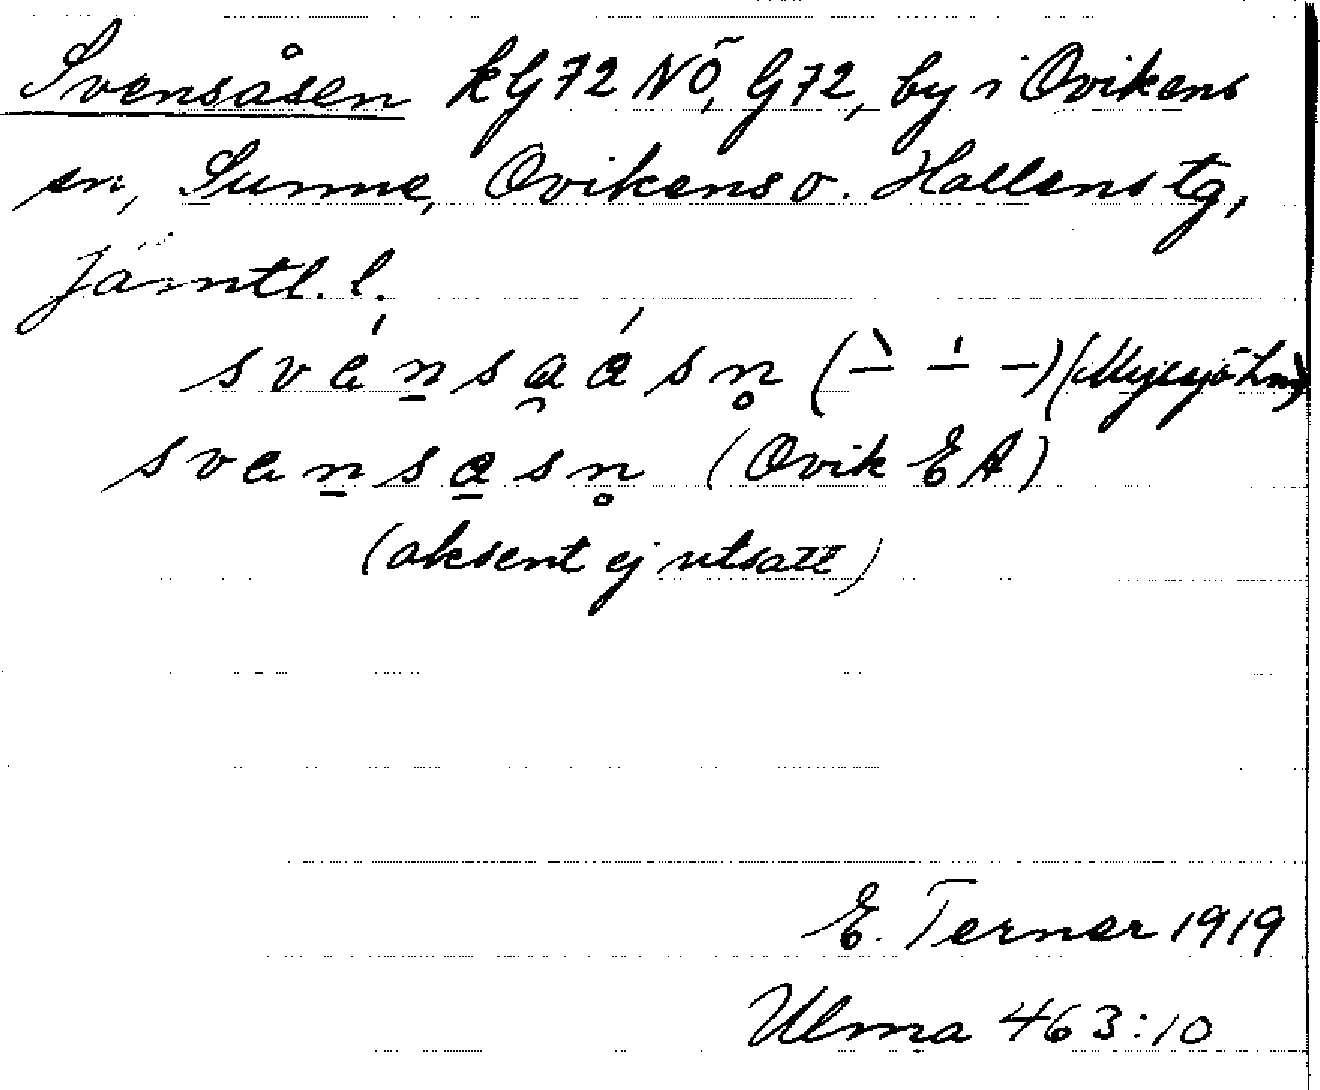 Svensåsen kG72 NÖ, G72, by i Ovikens
sn, Sunne, Ovikens o. Hallens tg,
Jämtl. l.
svénsa̯ásn̥ (– – –) (Myssjö Lm)
svensa̠sn̥ (Ovik EA)
(aksent ej utsatt)
E. Ternér 1919
Ulma 463:10